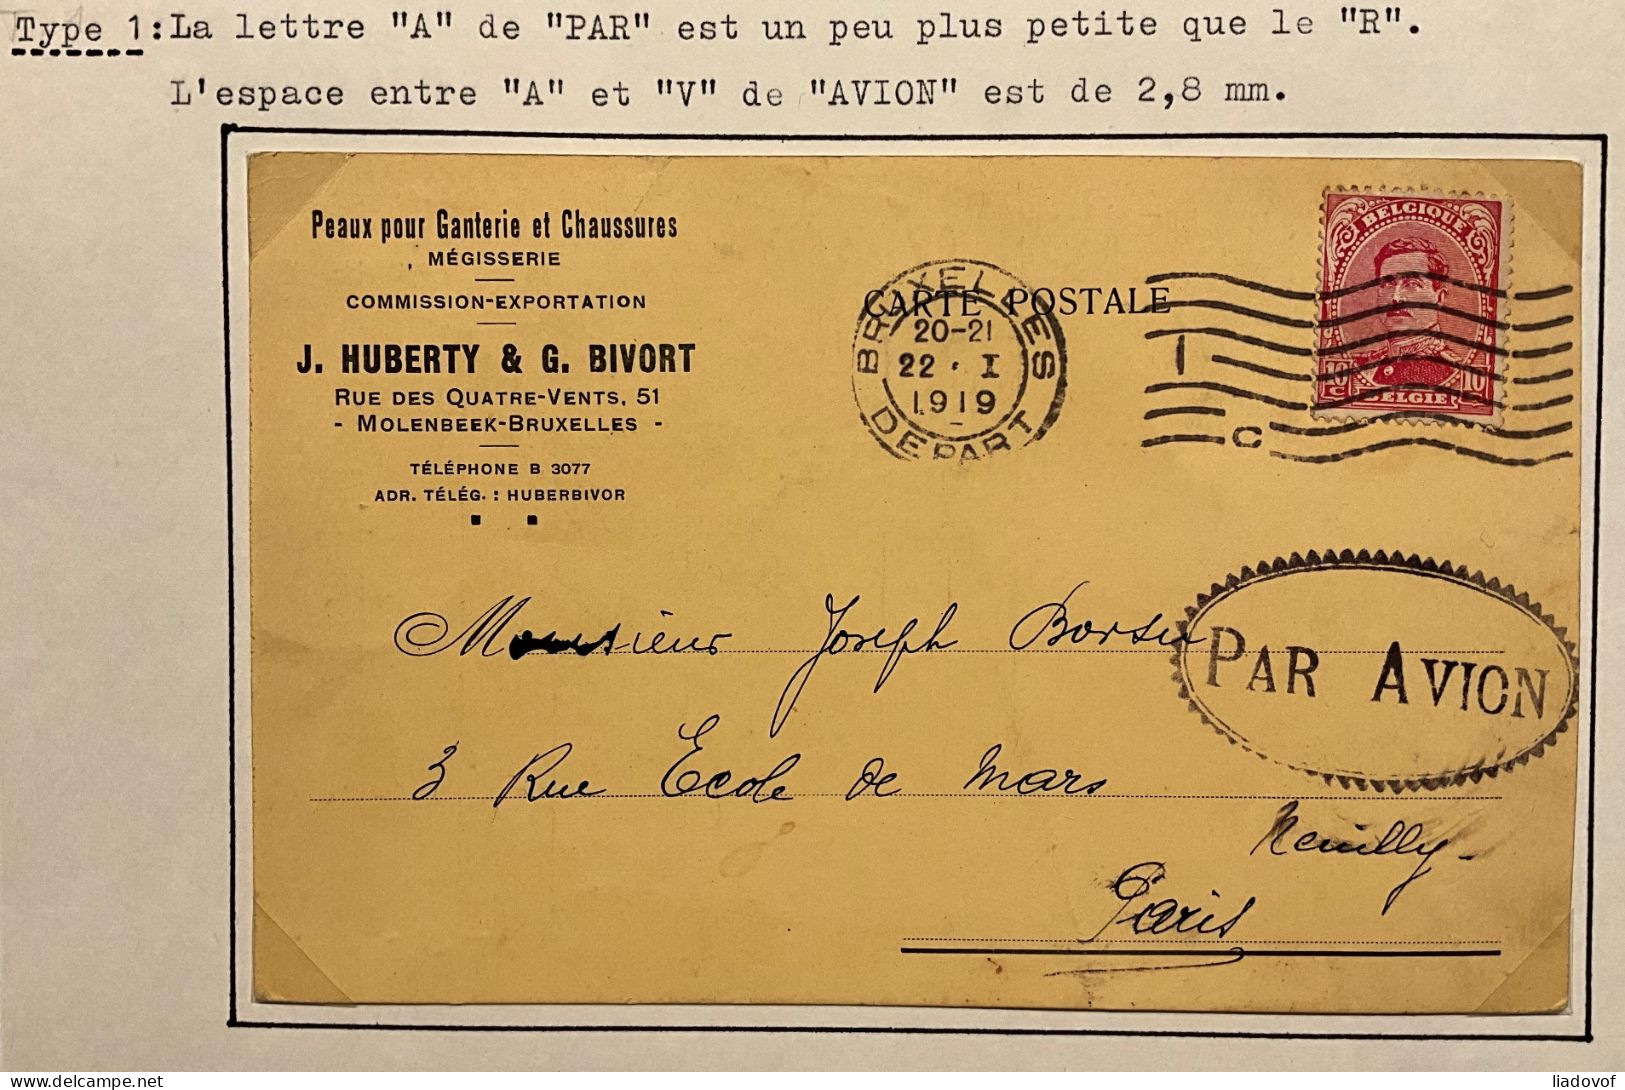 Type 1:La lettre "A" de "PAR" est un peu plus petite que le "R".
L'espace entre "A" et "V" de "AVION" est de 2,8 mm.
Peaux pour Ganterie et Chaussures
MÉGISSERIE
COMMISSION-EXPORTATION
J. HUBERTY & G. BIVORT
RUE DES QUATRE-VENTS, 51
- MOLENBEEK-BRUXELLES -
TÉLÉPHONE B 3077
ADR. TÉLÉG. : HUBERBIVOR
CARTE POSTALE
BRUXELLES
20-21
22 · I
1919
DEPART
I
C
BELGIQUE
10 C 10 C
BELGIË
PAR AVION
Monsieur Joseph Borsu
3 Rue Ecole de Mars
Neuilly-
Paris
delcampe.net
liadovof